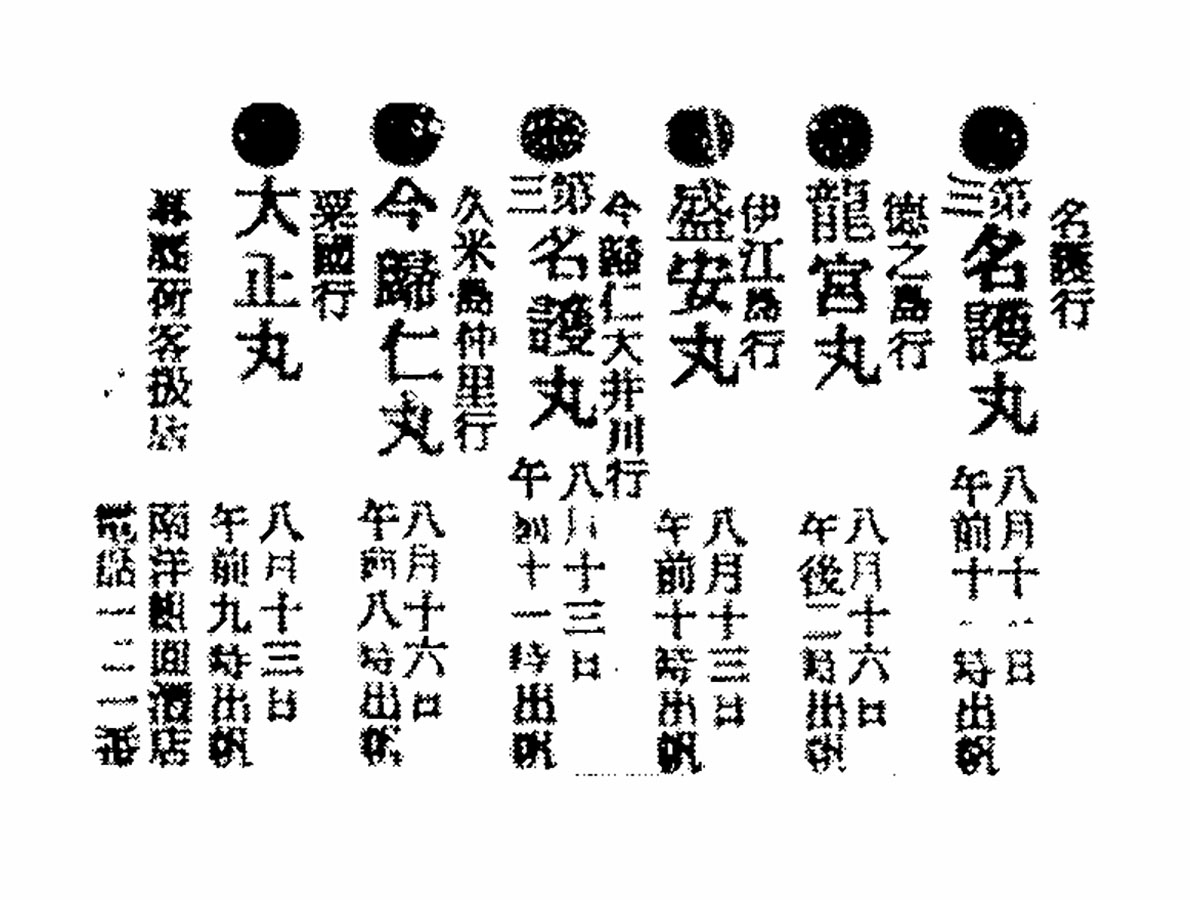 名護行
●第三名護丸
八月十一日
午前十一時出帆
徳之島行
●龍宮丸
八月十六日
午後二時出帆
伊江島行
●盛安丸
八月十三日
午前十時出帆
今歸仁大井川行
●第三名護丸
八月十三日
午前十一時出帆
久米島仲里行
●今歸仁丸
八月十六日
午前八時出帆
粟國行
●大正丸
八月十三日
午前九時出帆
荷客扱店
南洋 酒店
電話一二一番